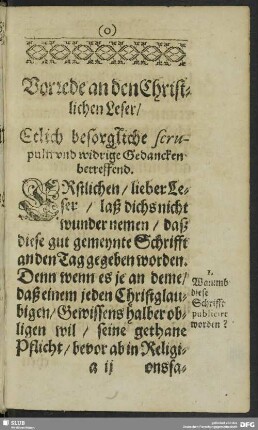 (0)
Vorrede an den Christ-
lichen Leser/
Etlich besorgliche scru-
puln vnd widrige Gedancken
betreffend.
ERstlichen/ lieber Le-
ser / laß dichs nicht
wunder nemen/ daß
diese gut gemeynte Schrifft
an den Tag gegeben worden.
Denn wenn es je an deme/
daß einem jeden Christglau-
bigen/ Gewissens halber ob-
ligen wil/ seine gethane
Pflicht/ bevor ab in Religi-
a ij onsfa-
1.
Warumb
diese
Schrifft
publicirt
worden?
SLUB
DFG